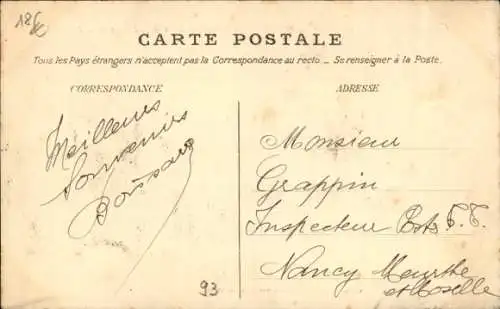 18
CARTE POSTALE
Tous les Pays étrangers n'acceptent pas la Correspondance au recto. — Se renseigner à la Poste.
CORRESPONDANCE
Meilleurs
Souvenirs
ADRESSE
Monsieur
Grappin
Inspecteur
Nancy Meurthe
et Moselle
93